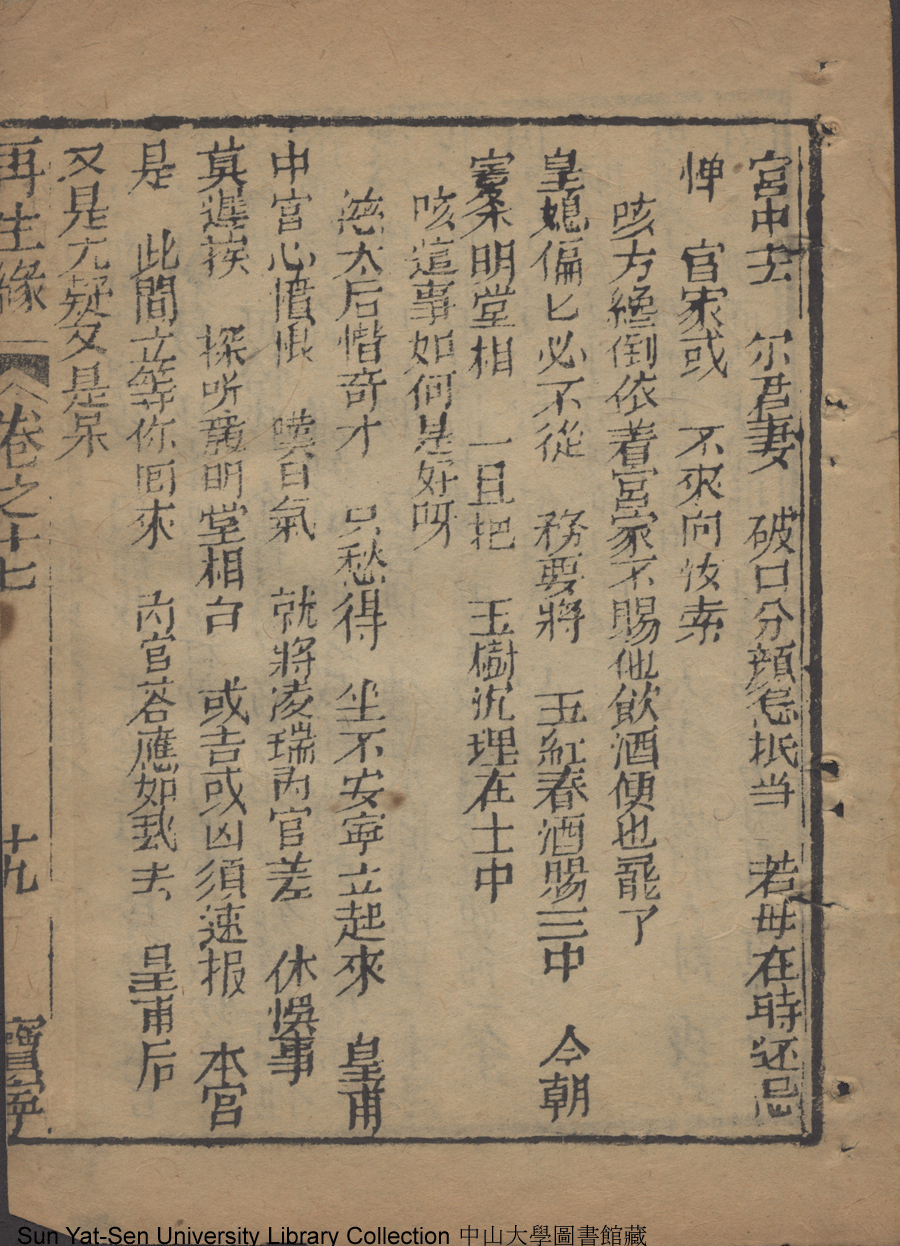 宮中去　尔君妻　破口分顔怎抵当　若毋在時还忌
惮　官家或　不來向汝索
咳方絶倒依着宮家不賜他飲酒便也罷了
皇媳偏匕必不從　務要將　玉紅春酒賜三中　今朝
害柰明堂相　一旦把　玉樹沉理在土中
咳這事如何是好呀
慈太后惜奇才　只愁得　坐不安寧立起來　皇甫
中宮心憤恨　嘆口氣　就將凌瑞内官差　休悞事
莫遲挨　探听酈明堂相白　或吉或凶須速报　本宮
是　此間立等你回來　内官荅應如飛去　皇甫后
又是尤疑又是呆
再生緣　卷之十七　十九　寶寧
Sun Yat-Sen University Library Collection 中山大學圖書館藏